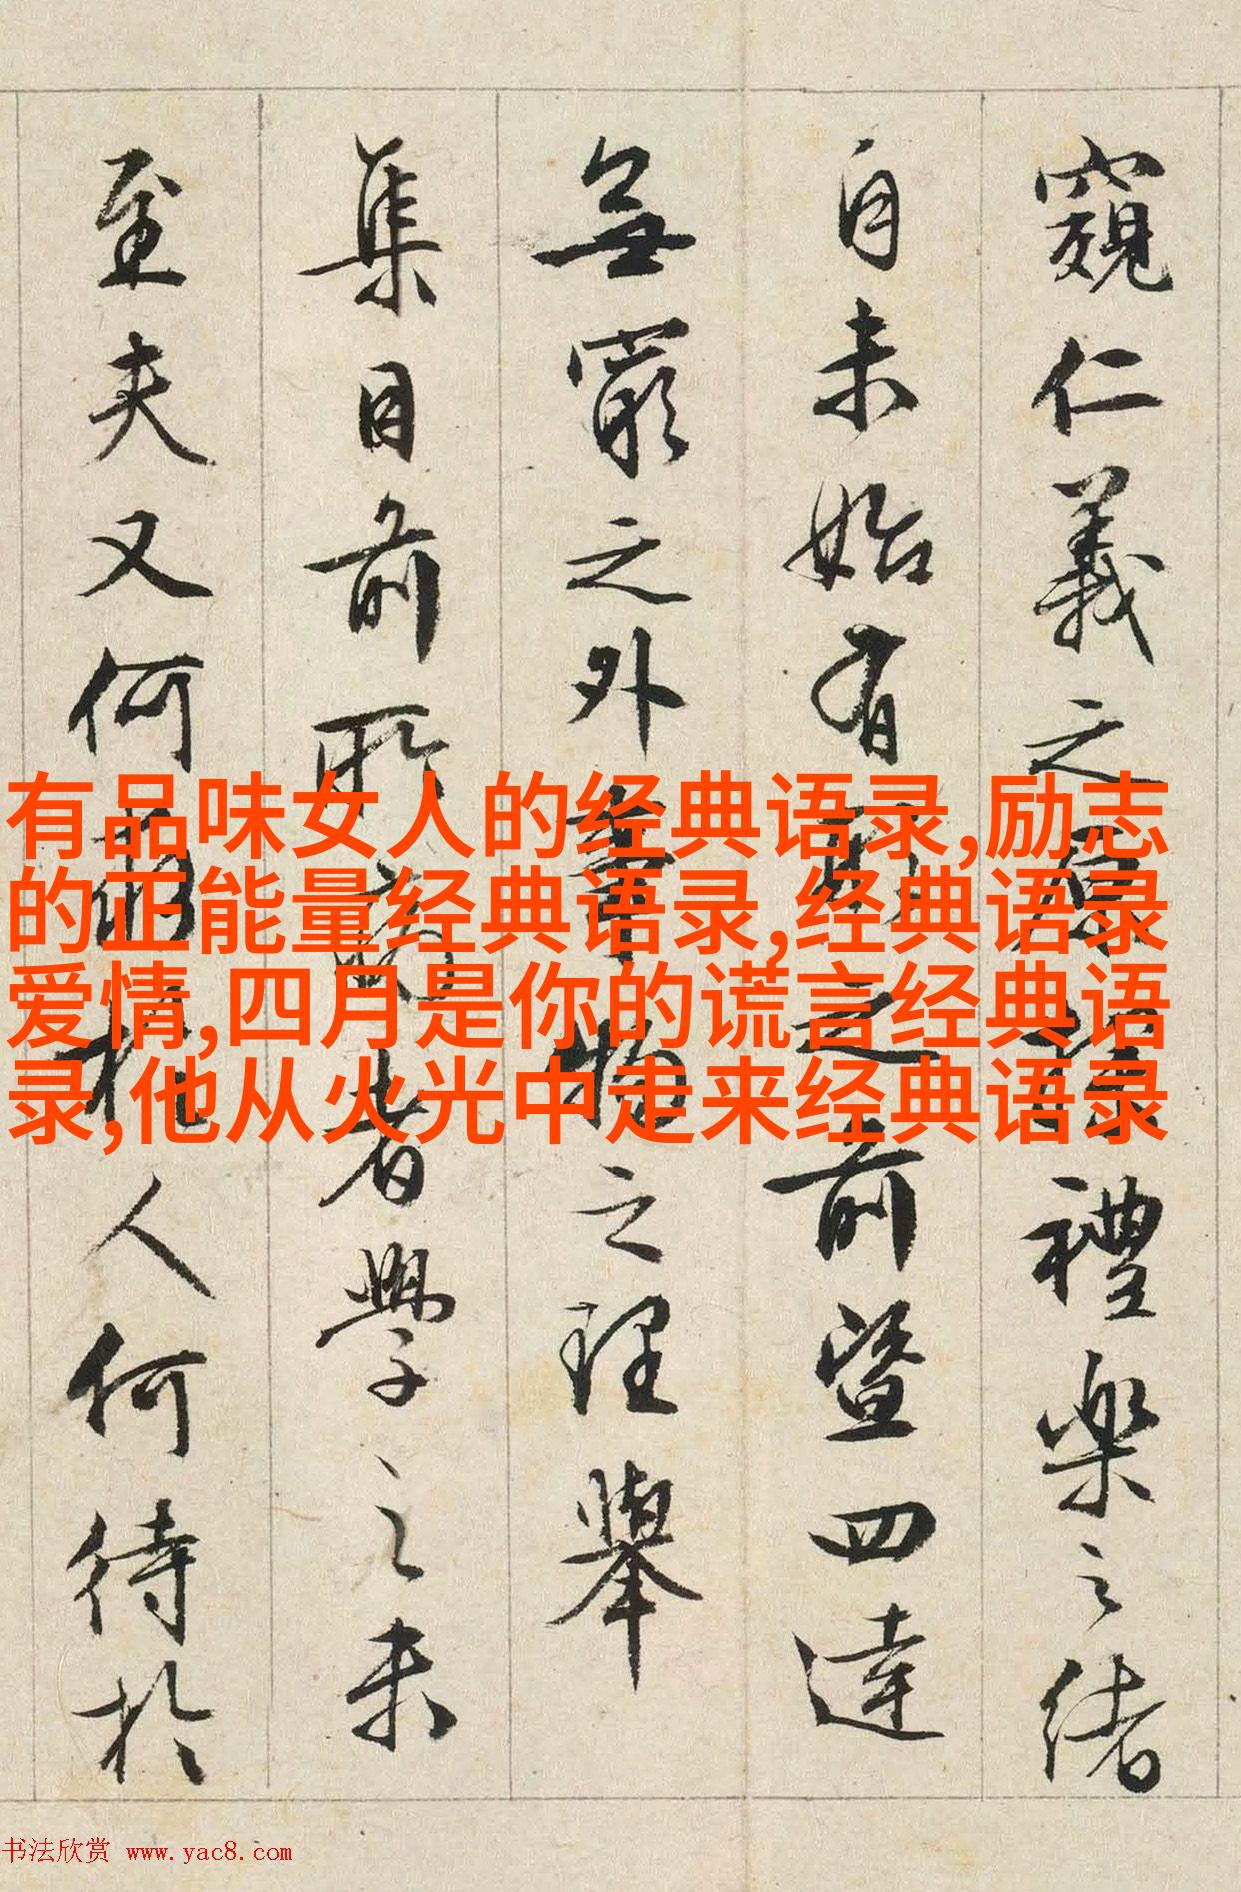 窺仁義之原探禮樂之緒
自未始有形之前暨四達
無窮之外事物之理舉
集目前所病者學之未
至夫又何求於人何待於
有品味女人的经典语录,励志
的正能量经典语录,经典语录
爱情,四月是你的谎言经典语
录,他从火光中走来经典语录
书法欣赏 www.yac8.com